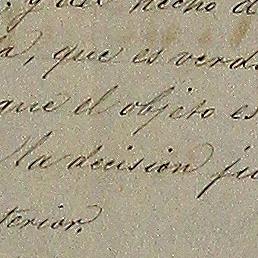 y del hecho d
a, que es verd
que el objeto es
lla decision ju
terior.